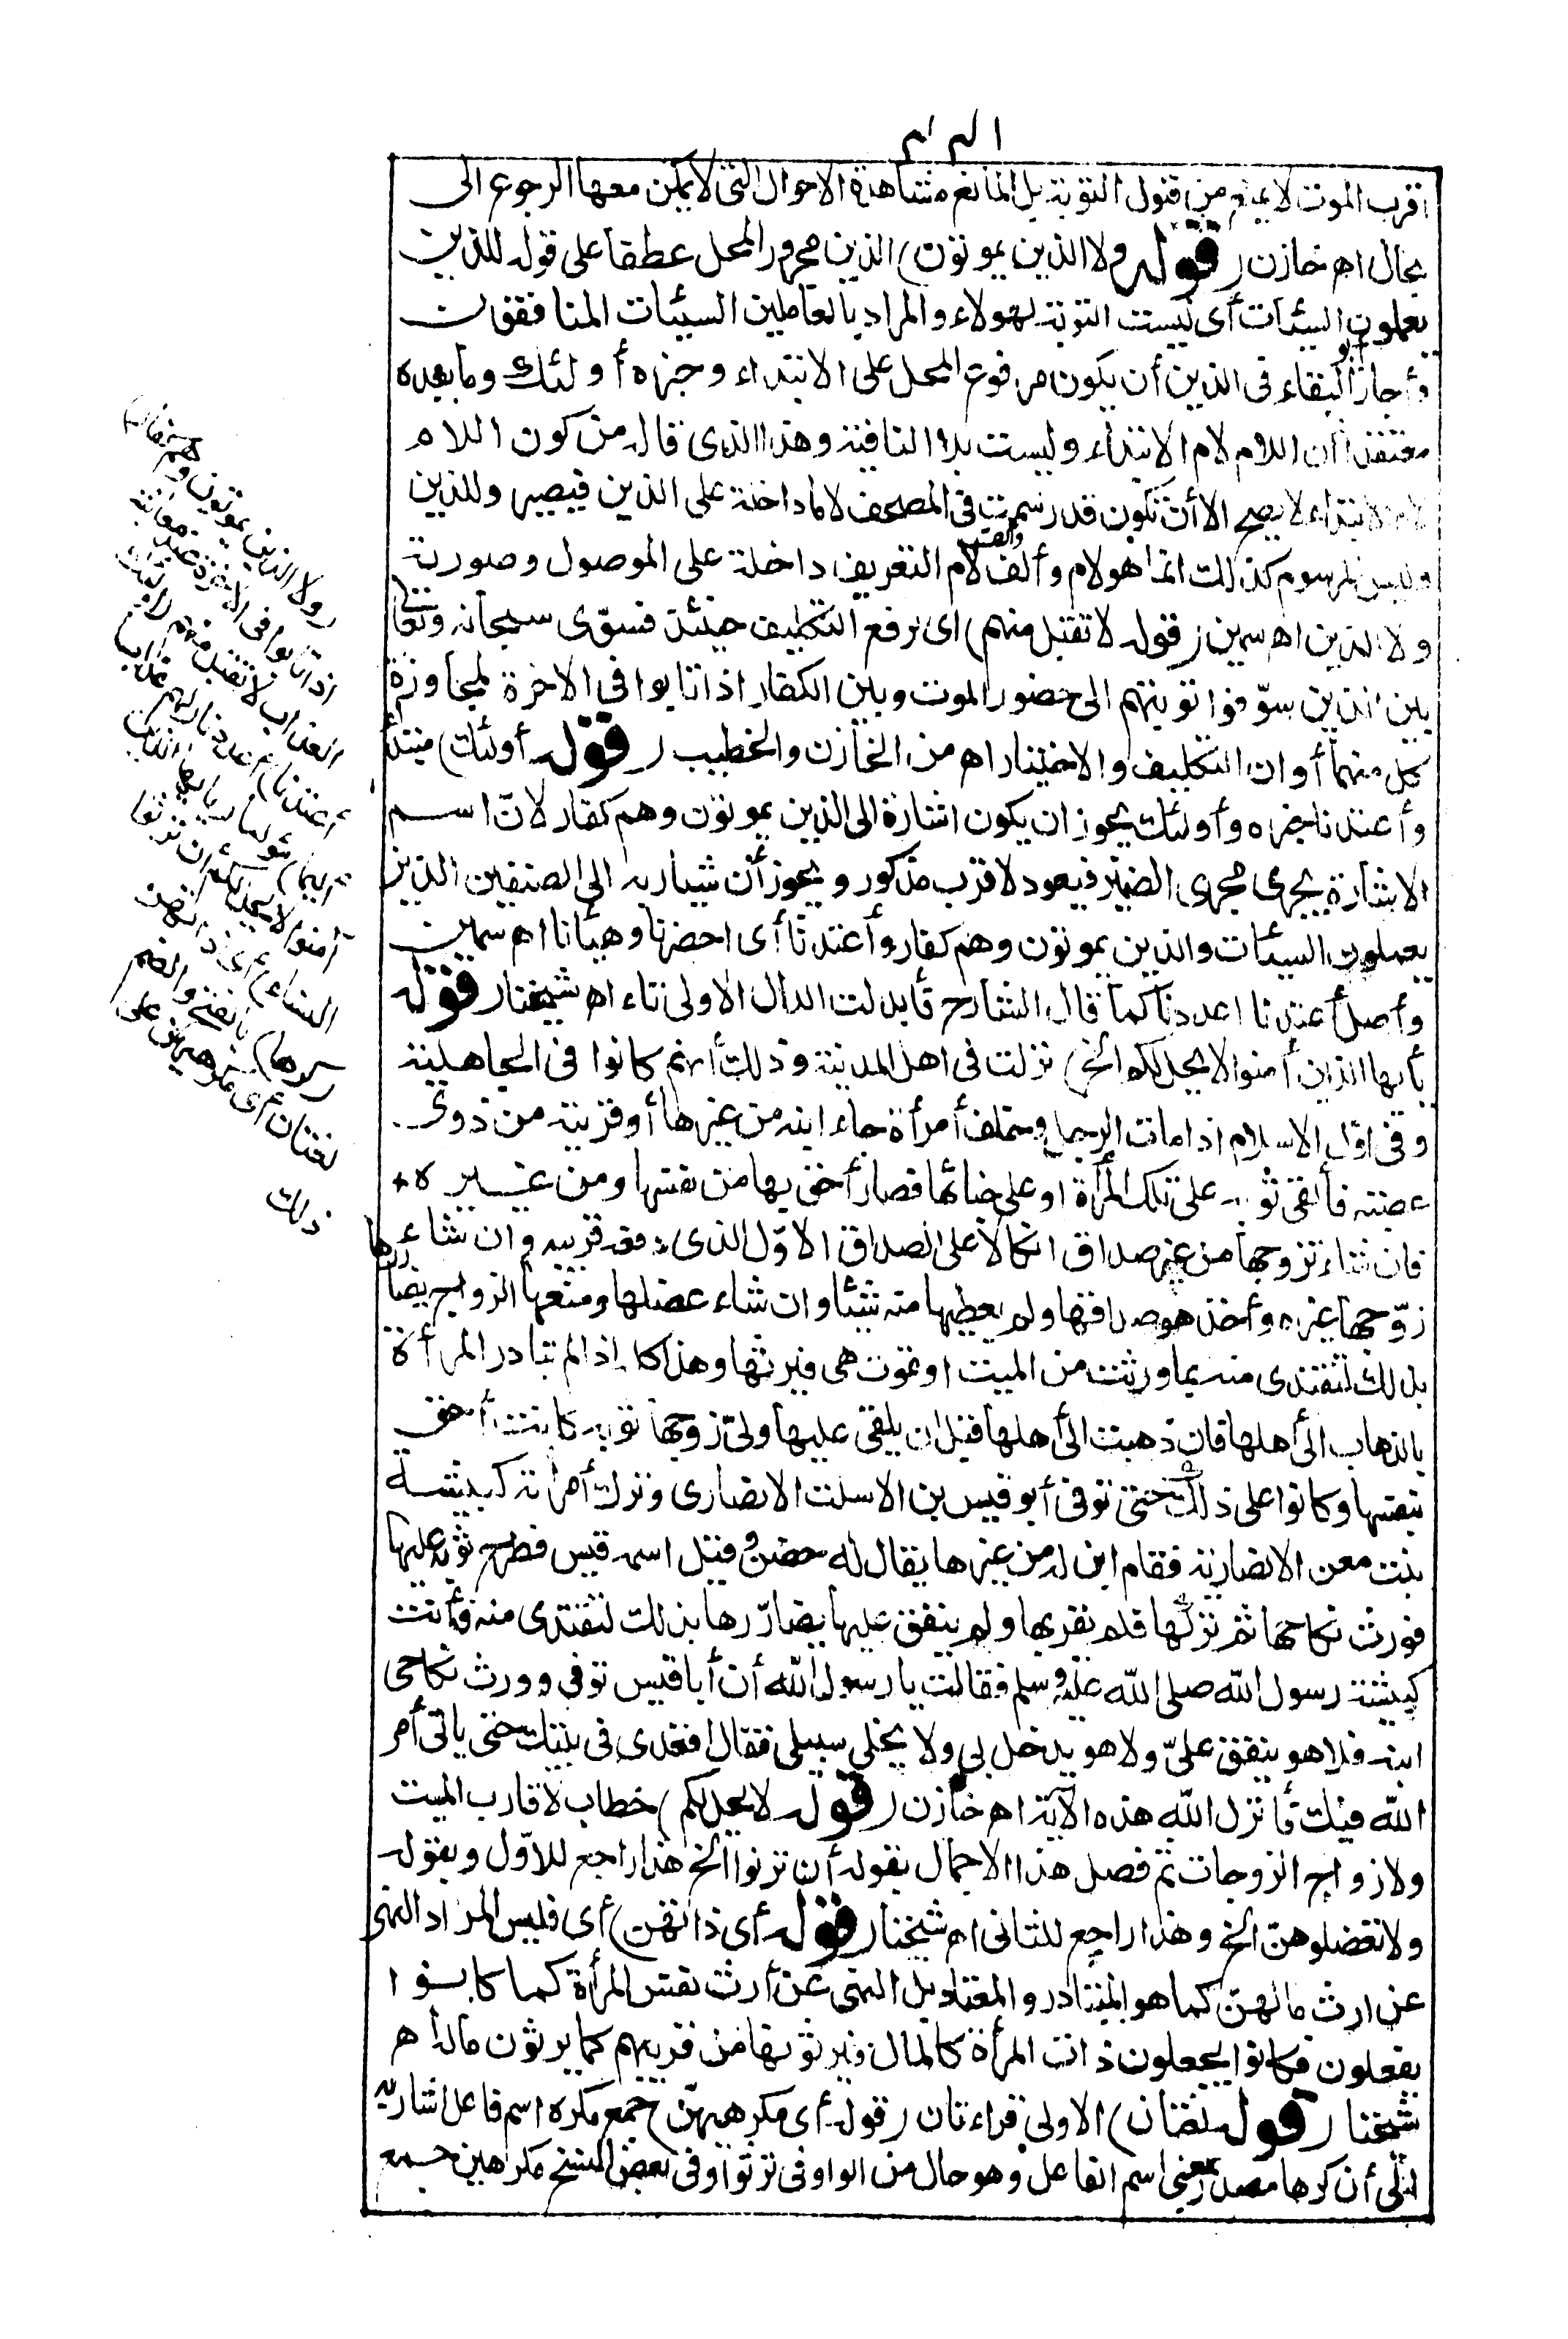 اقرب الموت لا يمنع من قبول التوبة بل المانع مشاهدة الاحوال التى لا يمكن معها الرجوع الى
بحال اه خازن (قوله ولا الذين يموتون) الذين مجرور المحل عطفا على قوله للذين
يعملون السيئات أى ليست التوبة لهولاء والمراد بالعاملين السيئات المنافقون
وأجاز أبو البقاء فى الذين أن يكون مرفوع المحل على الابتداء وخبره أولئك وما بعده
معتقدا أن اللام لام الابتداء وليست بلا النافية وهذا الذى قاله من كون اللام
لام الابتداء لا يصح الا أن تكون قد رسمت فى المصحف لاما داخلة على الذين فيصير وللذين
وليس المرسوم كذلك انما هو لام وألف وألف لام التعريف داخلة على الموصول وصورته
ولا الذين اه سمين (قوله لا تقبل منهم) اى لرفع التكليف حينئذ فسوّى سبحانه وتعالى
بين الذين سوّفوا توبتهم الى حضور الموت وبين الكفار اذا تابوا فى الاخرة لمجاوزة
كل منهما أوان التكليف والاختيار اه من الخازن والخطيب (قوله أولئك) مبتدأ
وأعتدنا خبره وأولئك يجوز ان يكون اشارة الى الذين يموتون وهم كفار لانّ اسم
الاشارة يجرى مجرى الضمير فيعود لاقرب مذكور ويجوز أن يشار به الى الصنفين الذين
يعملون السيئات والذين يموتون وهم كفار وأعتدنا أى احضرنا وهيأنا اه سمين
وأصل أعتدنا اعددنا كما قال الشارح فأبدلت الدال الاولى تاء اه شيخنا (قوله
يأيها الذين أمنوا لا يحل لكم الخ) نزلت فى اهل المدينة وذلك أنهم كانوا فى الجاهلية
وفى اوّل الاسلام اذا مات الرجل وخلف أمرأة جاء ابنه من غيرها أو قريبه من ذوى
عصبته فألقى ثوبه على تلك المرأة او على خبائها فصار أحق بها من نفسها ومن غيره
فان شاء تزوجها من غير صداق اتكالا على الصداق الاوّل الذى دفعه قريبه وان شاء
زوّجها غيره وأخذ هو صداقها ولم يعطيها منه شيئا وان شاء عضلها ومنعها الزواج يضاررها
بذلك لتفتدى منه بما ورثت من الميت او تموت هى فيرثها وهذا كله اذا لم تبادر المرأة
بالذهاب الى أهلها فان ذهبت الى أهلها قبل ان يلقى عليها ولىّ زوجها ثوبه كانت أحق
بنفسها وكانوا على ذلك حتى توفى أبو قيس بن الاسلت الانصارى وترك أمرأته كبيشة
بنت معن الانصارية فقام ابن له من غيرها يقال له حصن وقيل اسمه قيس فطرح ثوبه عليها
فورث نكاحها ثم تركها فلم يقربها ولم ينفق عليها يضارّرها بذلك لتفتدى منه فأتت
كبيشة رسول الله صلى الله عليه وسلم فقالت يا رسول الله أن أبا قيس توفى وورث نكاحى
ابنه فلا هو ينفق علىّ ولا هو يدخل بى ولا يخلى سبيلى فقال اقعدى فى بيتك حتى ياتى أمر
الله فيك فأنزل الله هذه الآية اه خازن (قوله لا يحل لكم) خطاب لاقارب الميت
ولازواج الزوجات ثم فصل هذا الاجمال بقوله أن ترثوا الخ هذا راجع للاوّل وبقوله
ولا تعضلوهنّ الخ وهذا راجع للثانى اه شيخنا (قوله أى ذاتهن) أى فليس المراد النهى
عن ارث مالهنّ كما هو المتبادر والمعتاد بل النهى عن أرث نفس المرأة كما كانوا
يفعلون فكانوا يجعلون ذات المرأة كالمال فيرثونها من قريبهم كما يرثون ماله اه
شيخنا (قوله لغتان) الاولى قراءتان (قوله أى مكرهيهنّ) جمع مكره اسم فاعل اشار به
الى أن كرها مصدر بمعنى اسم الفاعل وهو حال من الواو فى ترثوا وفى بعض النسخ مكرهين جمع
(ولا الذين يموتون وهم كفار)
اذا تابوا فى الاخرة عند معاينة
العذاب لا تقبل منهم (أولئك
أعتدنا) أعددنا (لهم عذابا
أليما) مؤلما (يا أيها الذين
أمنوا لا يحل لكم أن ترثوا
النساء) أى ذاتهن
(كرها) بالفتح والضم
لغتان أى مكرهيهن على
ذلك